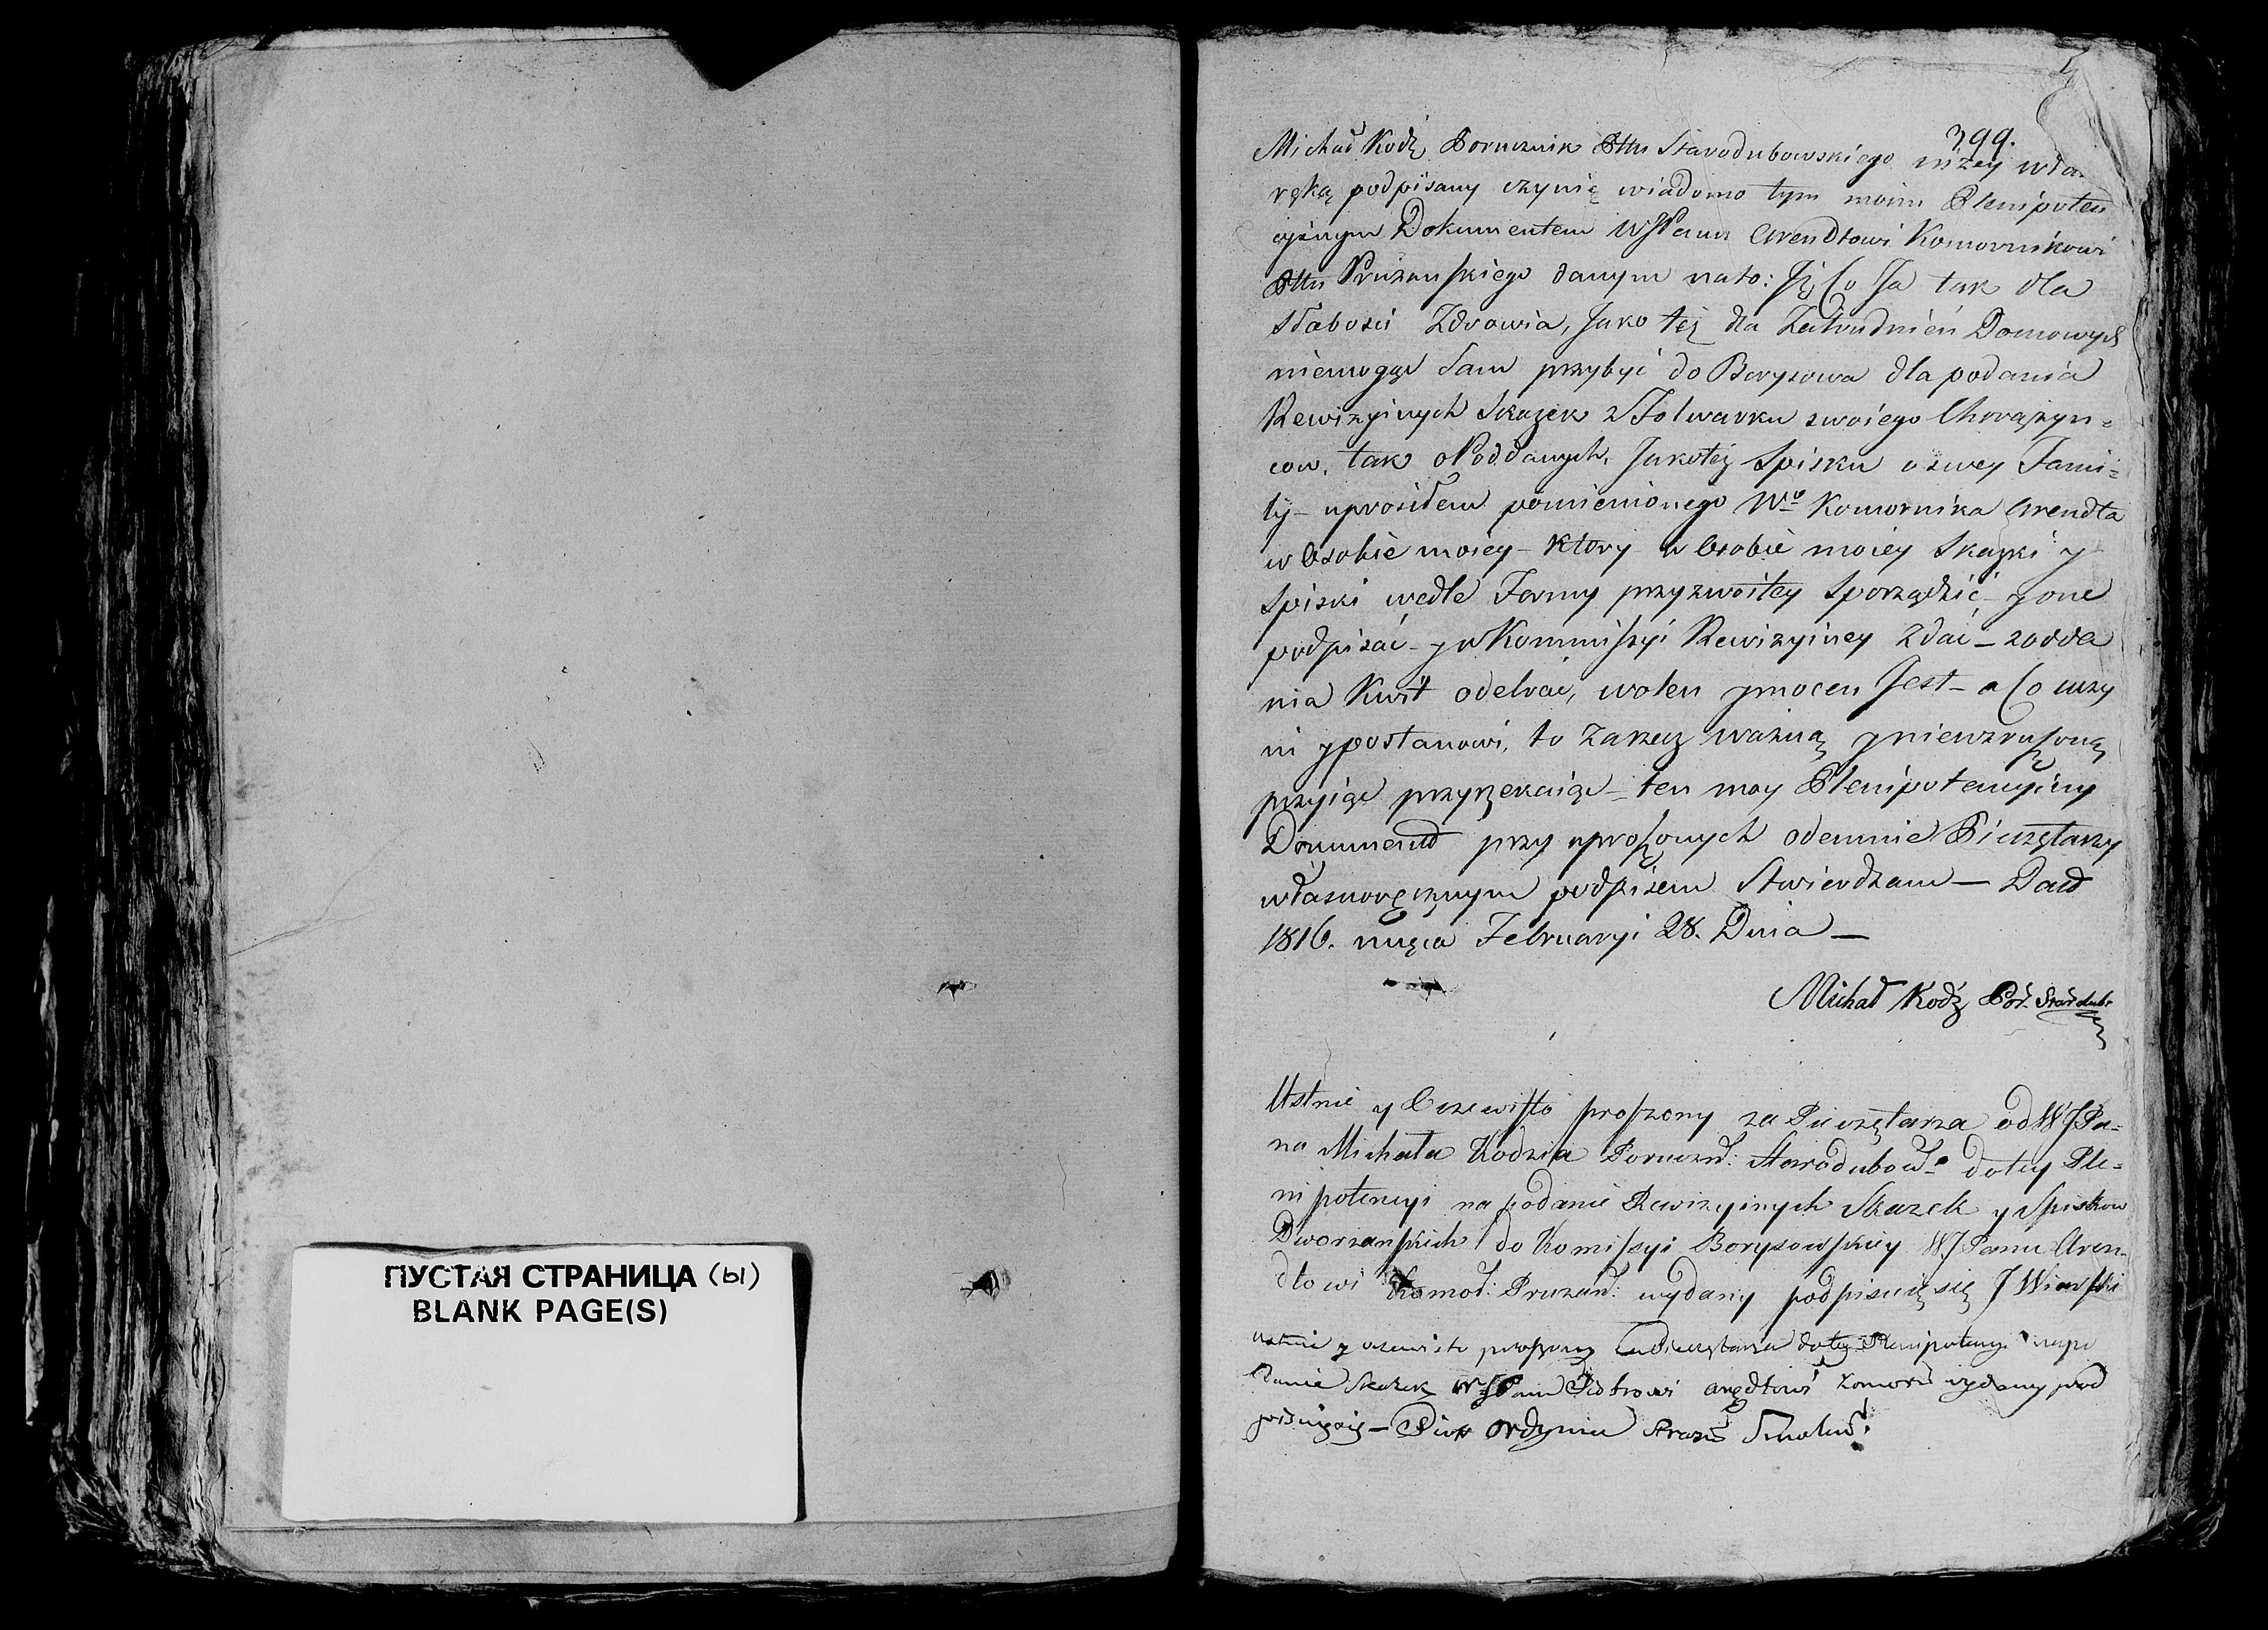 ПУСТАЯ СТРАНИЦА (ы)
BLANK PAGE(S)
399.
Michał Kodź Porucznik Pttu Starodubowskiego niżey wła
ręką podpisany czynię wiadomo tym moim Plenipoten
cyinym Dokumentem WJPanu Arendtowi Komornikowi
Pttu Pruzanskiego danym na to: Jż Co Ja tak dla
słabosci Zdrowia, Jako też dla Zatrudnień Domowych
niemogąc Sam przybyć do Borysowa dla podania
Rewizyinych Skazek z Folwarku swoiego Chorążyn=
cow, tak o Poddanych, Jakoteż Spisku o swey Fami=
lij - uprosiłem pomienionego Wo Komornika Arendta
w Osobie moiey - Ktory w Osobie moiey Skazki y
Spiski wedle Formy przyzwoitey Sporządzić - y one
podpisać - y w Kommissyi Rewizyiney Zdać - z odda
nia Kwit odebrać, wolen y mocen Jest - a Co uczy
ni y postanowi, to Za rzecz ważną y niewzruszoną
przyiąć przyrzekaiąc - ten moy Plenipotencyiny
Dokument przy uproszonych odemnie Pieczętarzy
własnoręcznym podpisem Stwierdzam — Dat
1816. mięca Februaryi 28. Dnia —
Michał Kodź Por. Starodub.
Ustnie y Oczewisto proszony za Pieczętarza od WJPa=
na Michała Kodzia Porucznł: Starodubowo do tey Ple=
nipotencyi na podanie Rewizyinych Skazek y Spiskow
Dworzanskich do Komissyi Borysowskiey WJPanu Aren=
dtowi Komoł: Pruzanł: wydany podpisuię się J
ustnie y oczewisto proszony za Pieczętarza do tey Plenipotencyi na po
danie Skazek WJPanu Piotrowi Arędtowi Komorni wydaney pod
pisuię się - Piotr Ordyniec Smoleń: